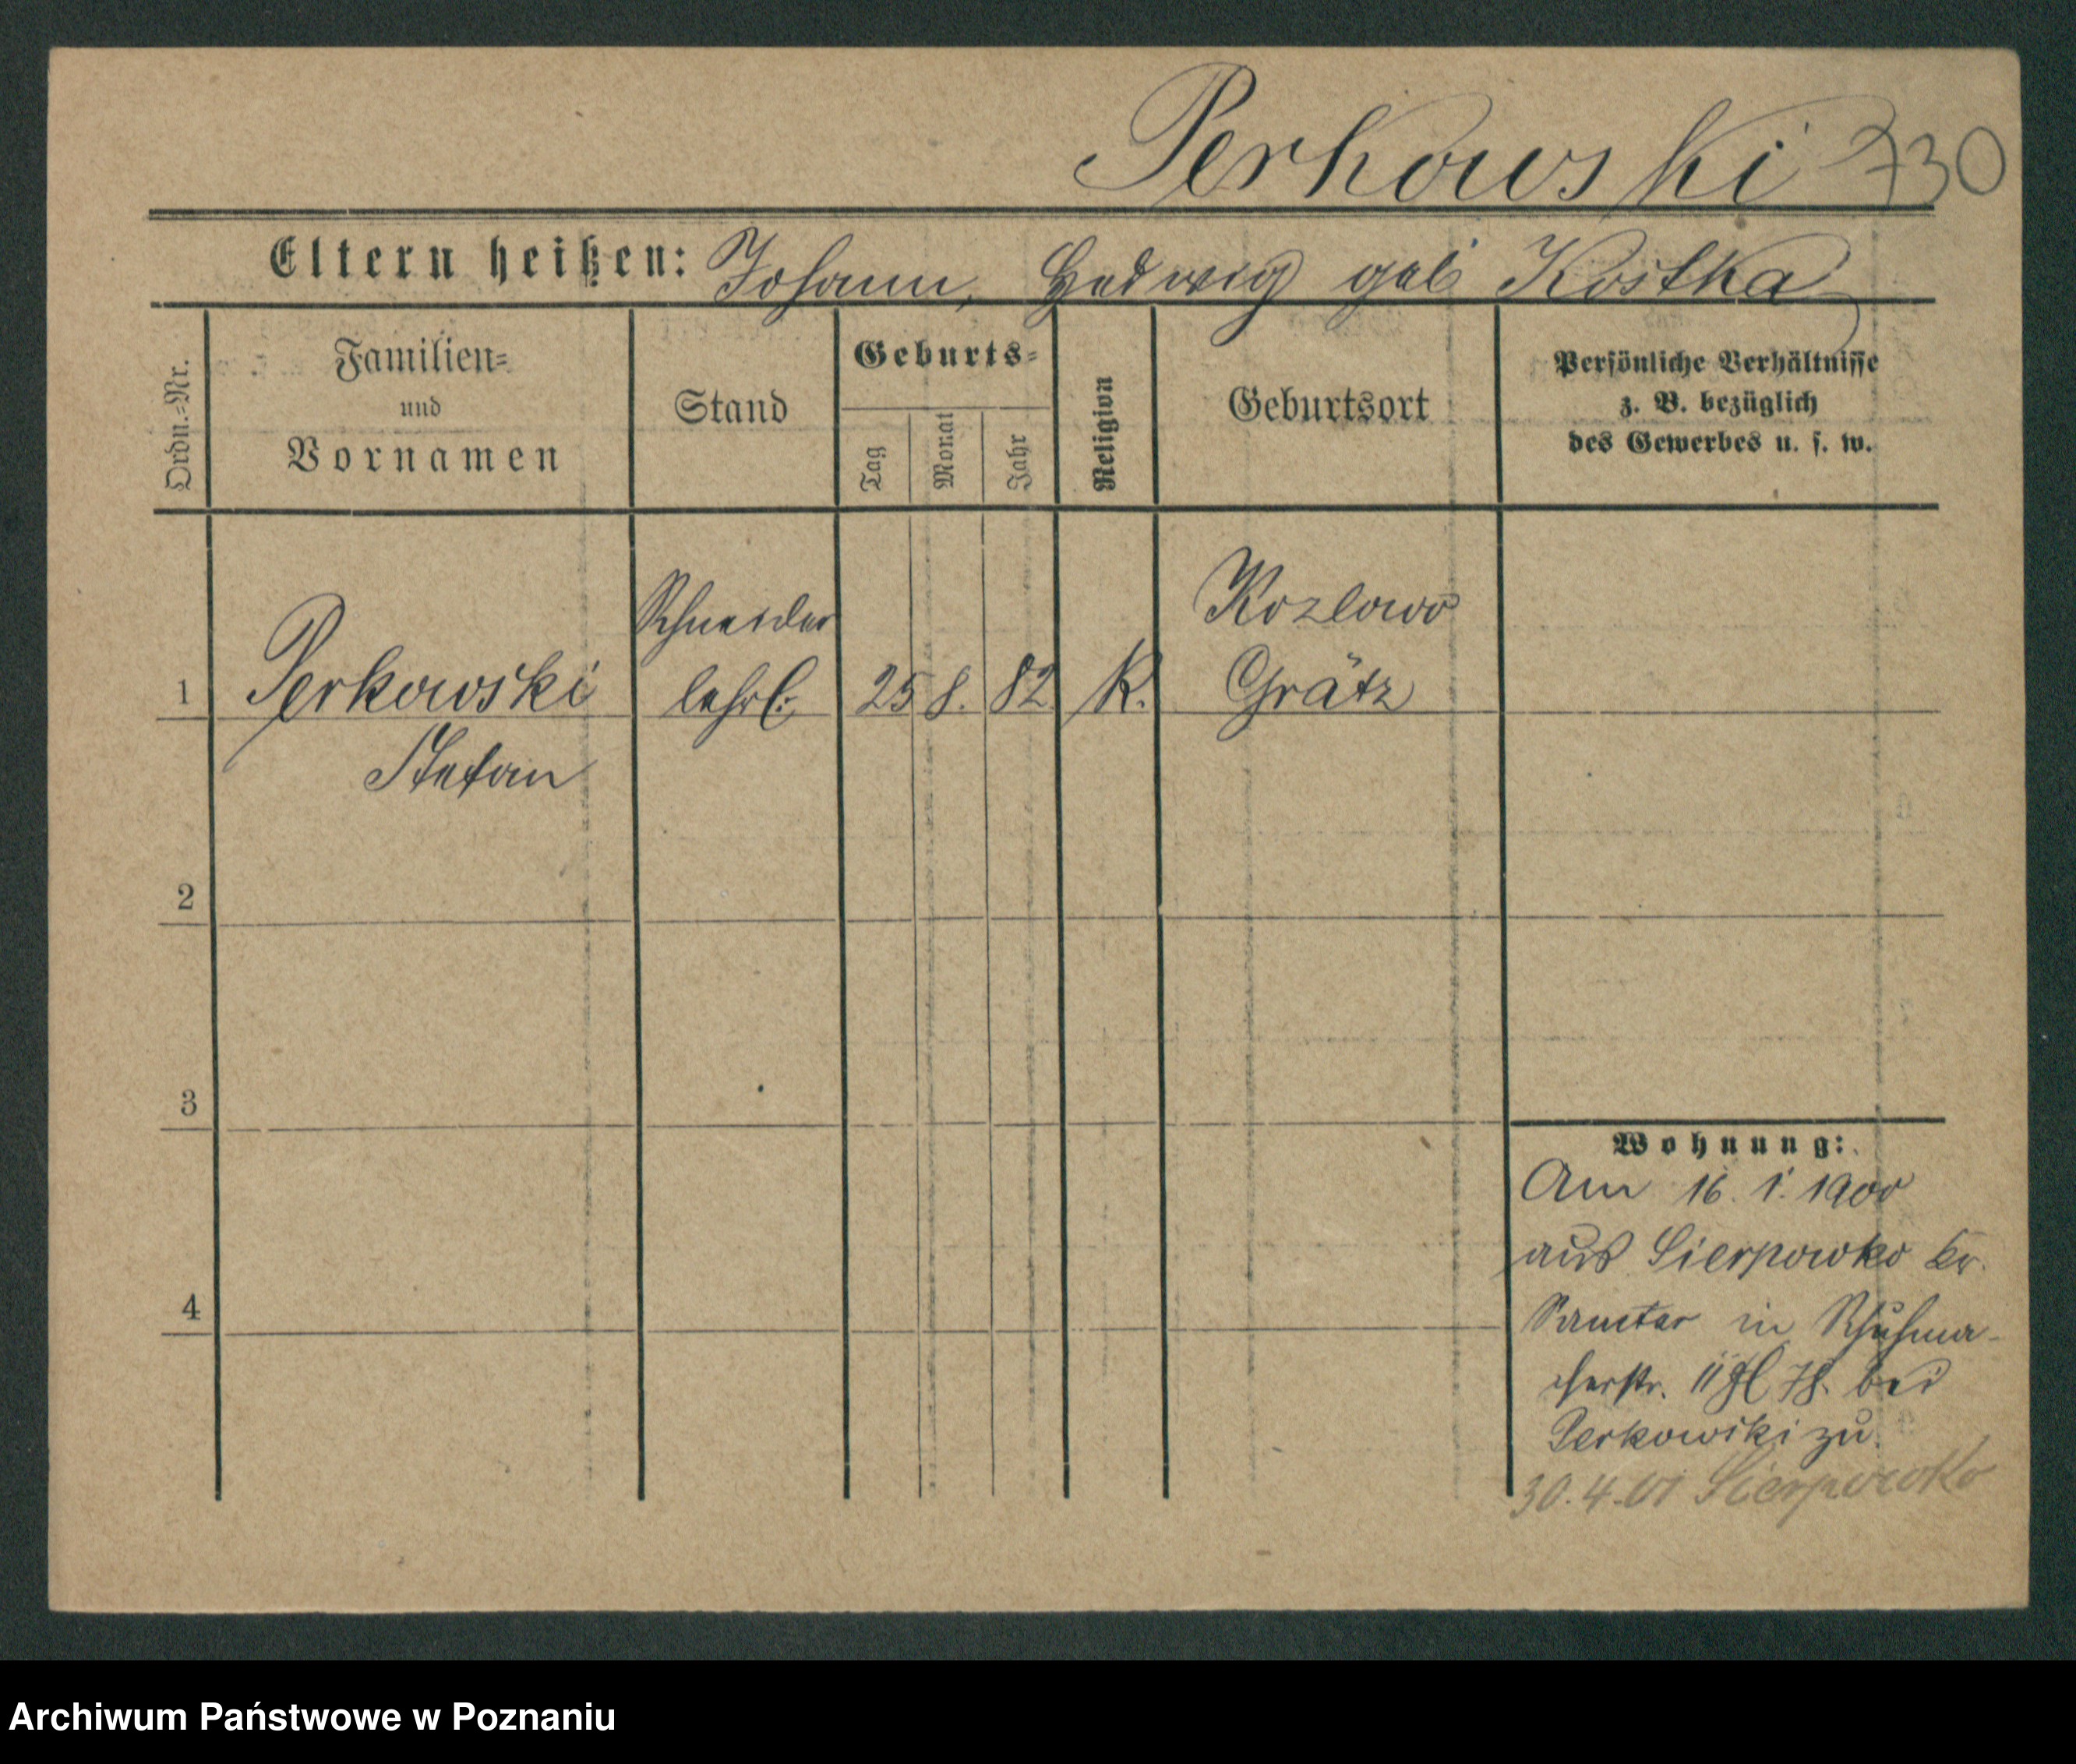 Perkowski 730
Eltern heißen: Johann, Hedwig geb Kostka
Ordn.-Nr.
Familien-
und
Vornamen
Stand
Geburts-
Tag
Monat
Jahr
Religion
Geburtsort
Persönliche Verhältnisse
z. B. bezüglich
des Gewerbes u. s. w.
1
Perkowski
Stefan
Schneider
lehrl.
25 8. 82
K.
Kozlowo
Grätz
2
3
4
Wohnung:
Am 16. 1. 1900
aus Sierpowko Kr.
Samter in Schuhma-
cherstr. 11 bei
Perkowski zu.
30.4.01 Sierpowko
Archiwum Państwowe w Poznaniu